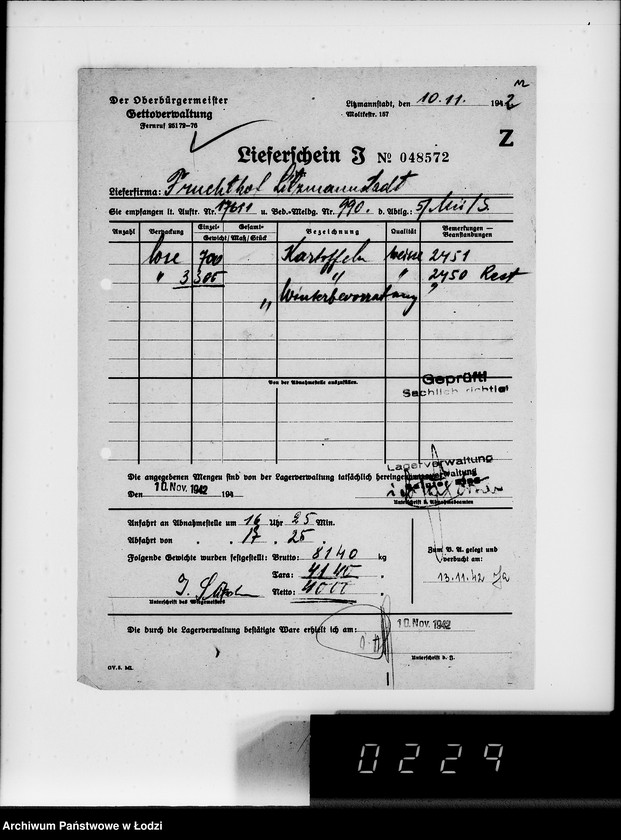 Der Oberbürgermeister
Gettoverwaltung
Fernruf 25172-76
Litzmannstadt, den 10.11. 1942
Moltkestr. 157
Z
Lieferschein J № 048572
Lieferfirma: Fruchthof Litzmannstadt
Sie empfangen lt. Auftr. Nr. 17611 u. Bed.-Meldg. Nr. 990. d. Abtlg.:
Anzahl Verpackung Einzel- Gesamt- Bezeichnung Qualität Bemerkungen — Beanstandungen
Gewicht/Maß/Stück
lose 700 Kartoffeln weisse 2451
" 3305 " " 2450 Rest
" Winterbevorratung "
Von der Abnahmestelle auszufüllen.
Geprüft!
Sachlich richtig!
Lagerverwaltung
Die angegebenen Mengen sind von der Lagerverwaltung tatsächlich hereingenommen
Den 10. Nov. 1942 194
Unterschrift d. Abnahmebeamten
Anfahrt an Abnahmestelle um 16 Uhr 25 Min.
Abfahrt von " " 17 " 25 "
Folgende Gewichte wurden festgestellt: Brutto: 8140 kg
Tara: 4140 "
Netto: 4000 "
Unterschrift des Wiegemeisters
Zum B. A. gelegt und
verbucht am:
13.11.42
Die durch die Lagerverwaltung bestätigte Ware erhielt ich am: 10. Nov. 1942
Unterschrift d. J.
GV. 5. ML.
0229
Archiwum Państwowe w Łodzi